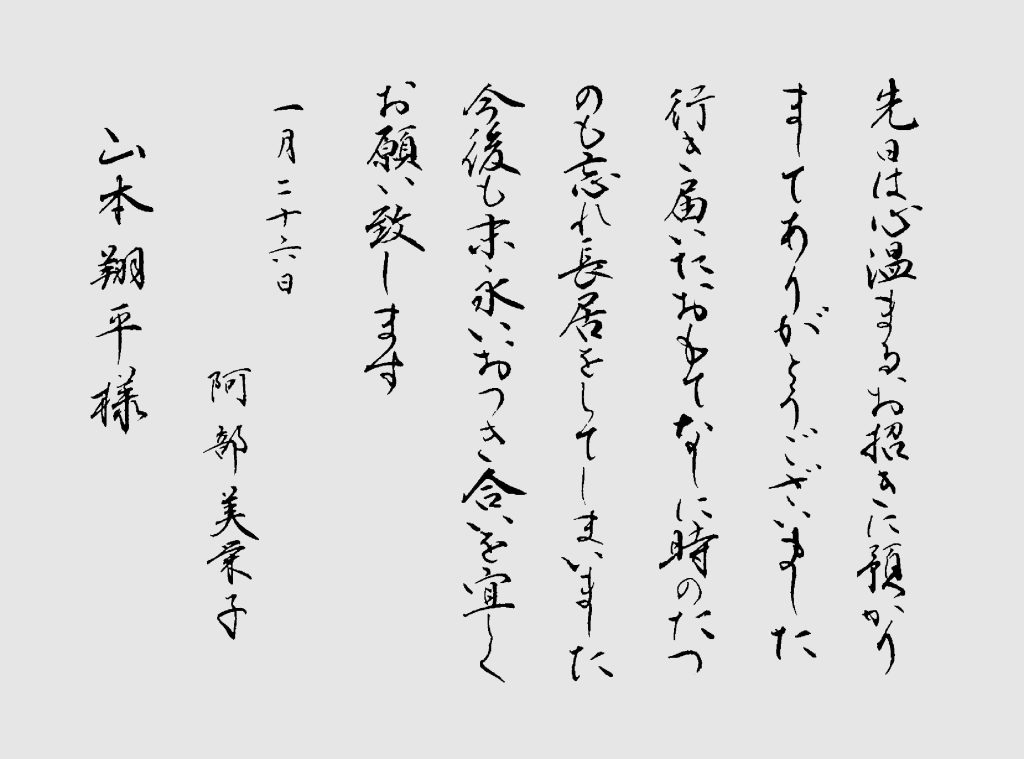 先日は心温まるお招きに預かり
ましてありがとうございました
行き届いたおもてなしに時のたつ
のも忘れ長居をしてしまいました
今後も末永いおつき合いを宜しく
お願い致します
一月二十六日
阿部美栄子
山本翔平様